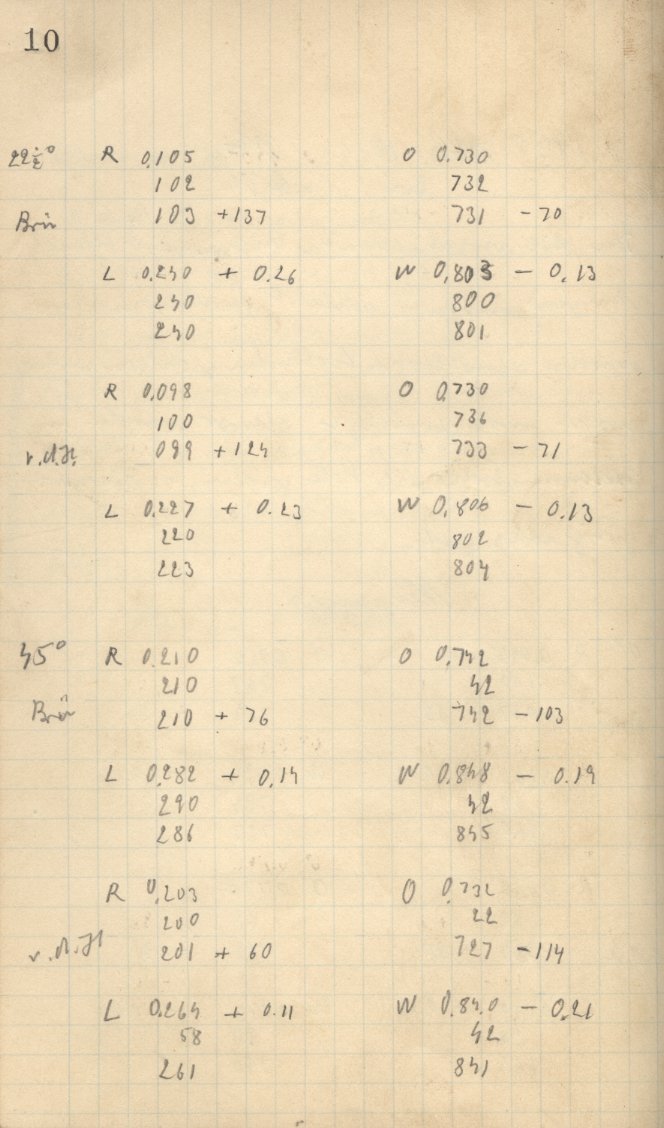 10
22½° R 0,105 O 0.730
102 732
Brü 103 +137 731 -70
L 0.240 + 0.26 W 0,803 - 0.13
240 800
240 801
R 0,098 O 0,730
100 736
v.d.H. 099 +124 733 -71
L 0.227 + 0.23 W 0,806 - 0.13
220 802
223 804
45° R 0.210 O 0,742
210 42
Brü 210 + 76 742 -103
L 0.282 + 0,14 W 0.848 - 0.19
290 42
286 845
R 0,203 O 0.732
200 22
v.d.H 201 + 60 727 -114
L 0.264 + 0.11 W 0.840 - 0.21
58 42
261 841